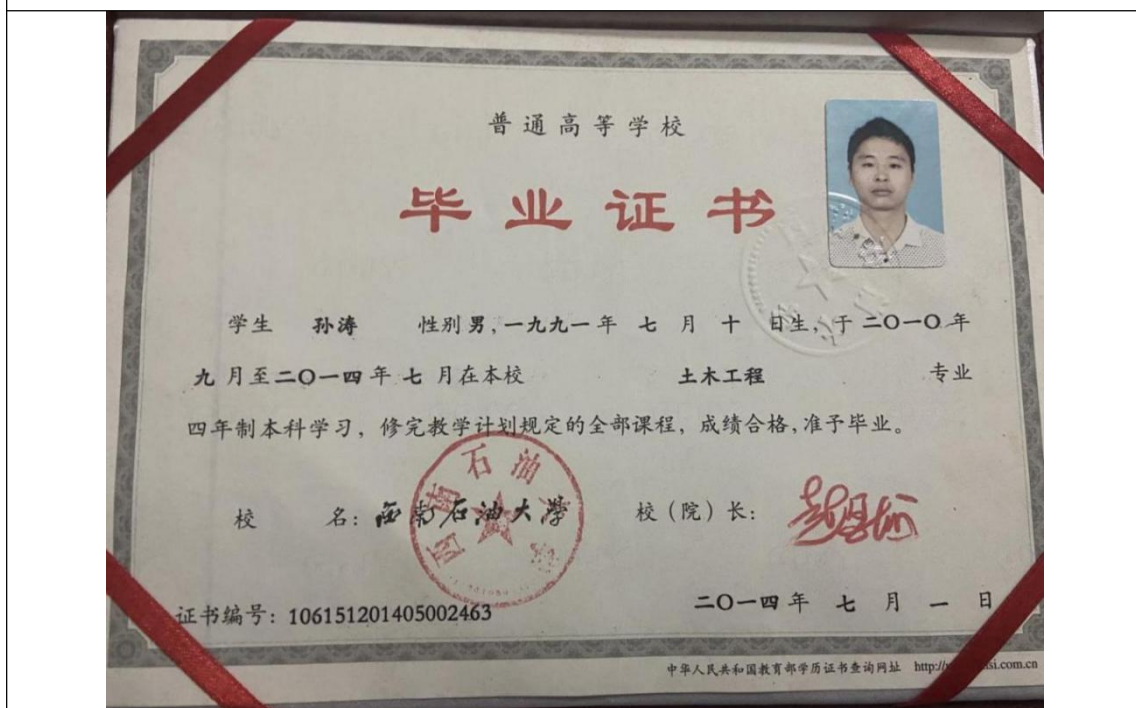 普通高等学校
毕业证书
学生 孙涛 性别 男, 一九九一 年 七 月 十 日生, 于 二〇一〇 年
九 月至 二〇一四 年 七 月在本校 土木工程 专业
四年制本科学习, 修完教学计划规定的全部课程, 成绩合格, 准予毕业。
校 名: 西南石油大學 校(院)长:
西南石油大学
证书编号: 106151201405002463 二〇一四 年 七 月 一 日
中华人民共和国教育部学历证书查询网址 http://
si.com.cn